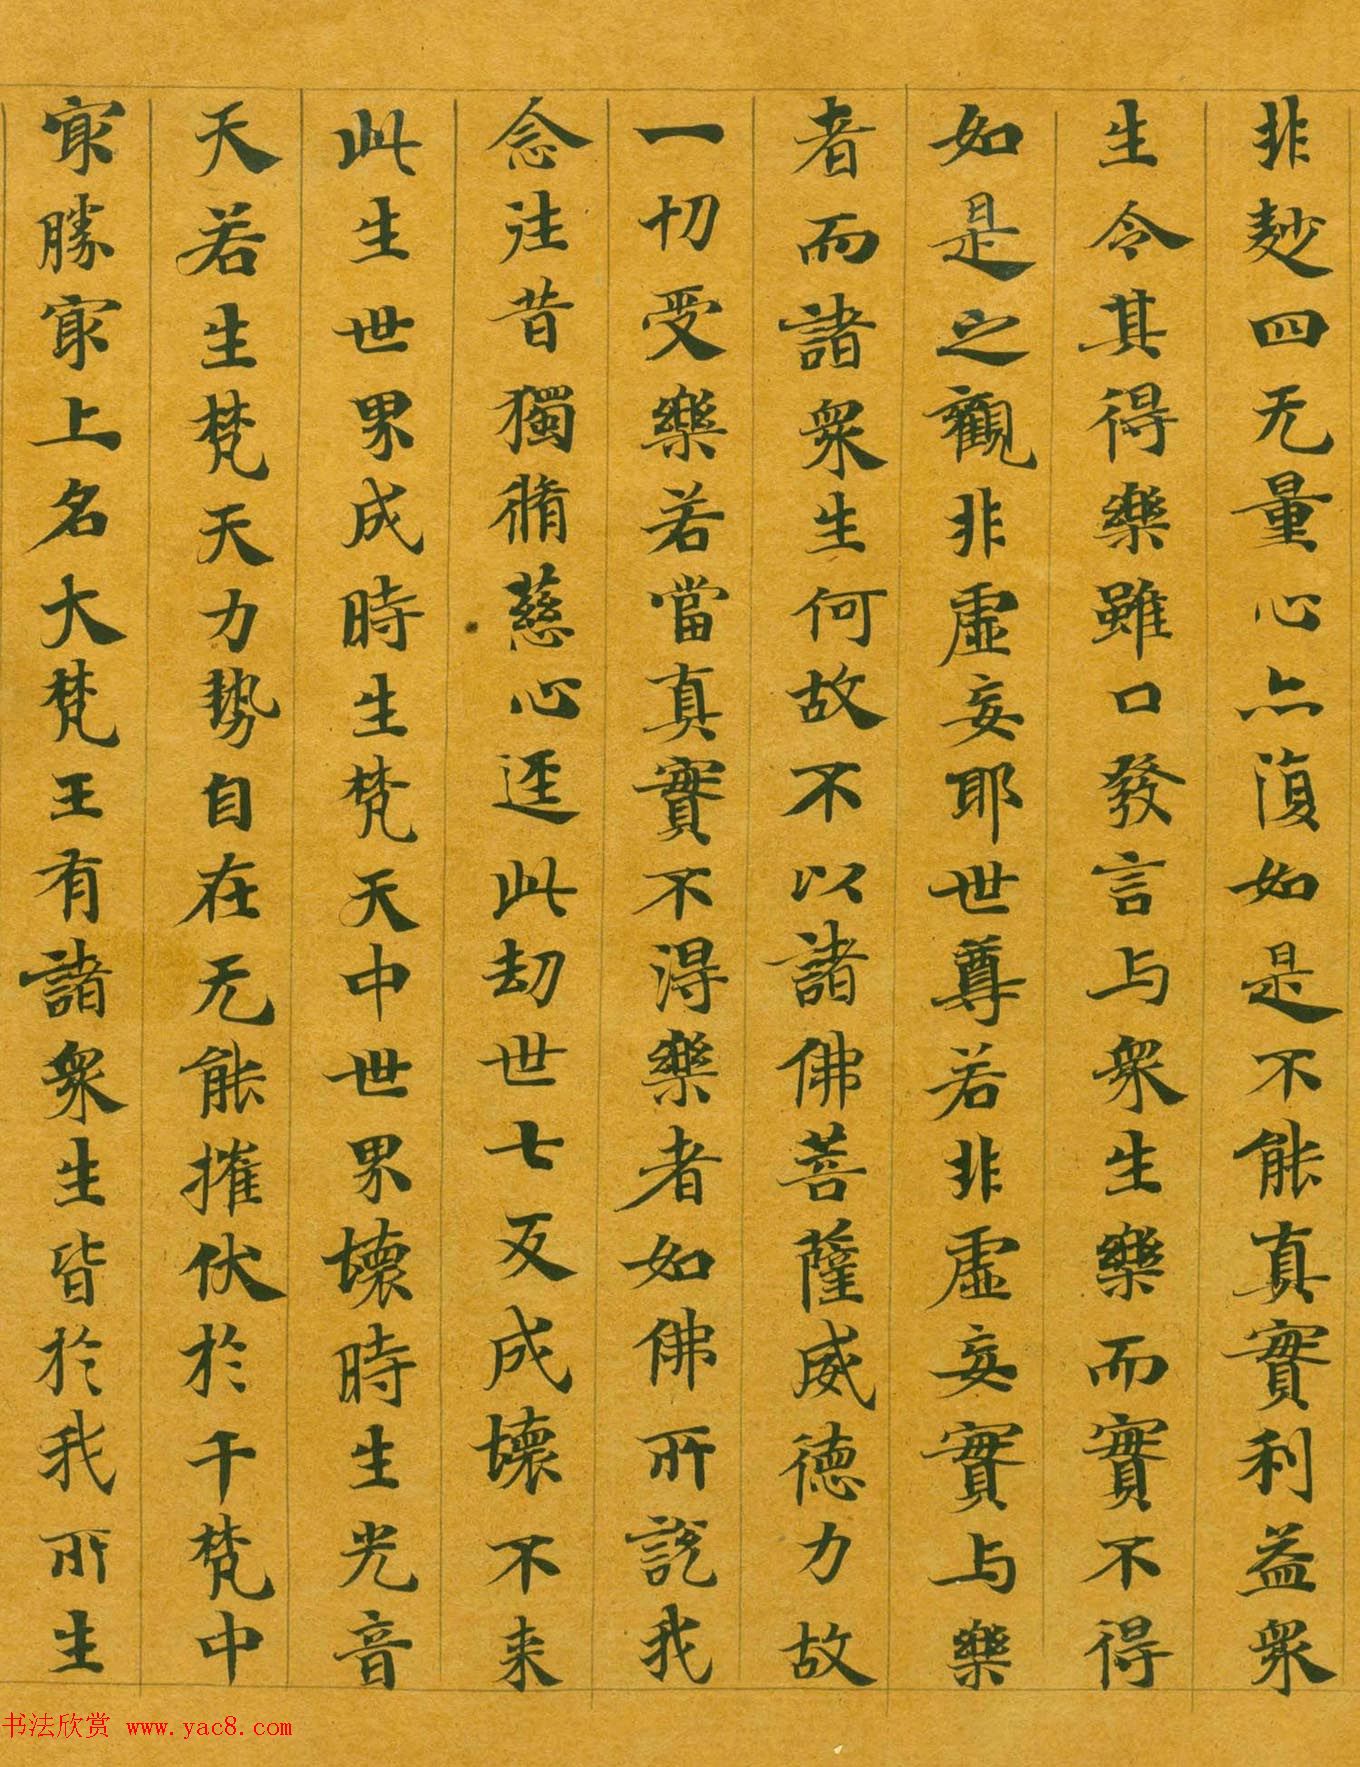 非麨四无量心亦復如是不能真實利益眾
生令其得樂雖口發言与眾生樂而實不得
如是之觀非虛妄耶世尊若非虛妄實与樂
者而諸眾生何故不以諸佛菩薩威德力故
一切受樂若當真實不得樂者如佛所說我
念往昔獨脩慈心逕此劫世七反成壞不来
此生世界成時生梵天中世界壞時生光音
天若生梵天力勢自在无能摧伏於千梵中
冣勝冣上名大梵王有諸眾生皆於我所生
书法欣赏 www.yac8.com